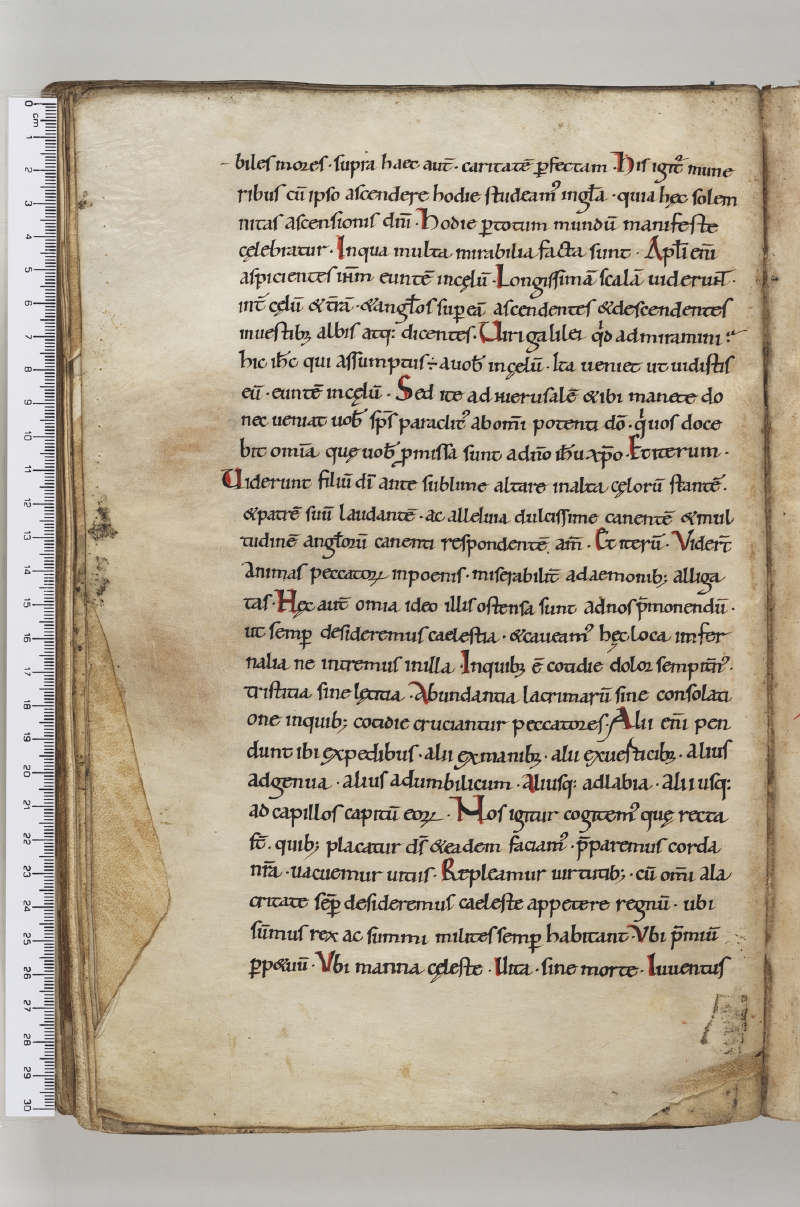 biles mores · supra haec aut̄ · caritatē ꝑfectam · His igit᷒ mune
ribus cū ipso ascendere hodie studeam᷒ in gl̄a · quia hęc solem
nitas ascensionis dn̄i · Hodie ꝑ totum mundū manifeste
cęlebratur · In qua multa mirabilia facta sunt · Apl̄i eni̅
aspicientes ih̄m euntē in cęlū · Longissimā scalā uiderun̄t ·
int̄ cęlū & t̄rā · & angl̄os suꝑ eā ascendentes & descendentes
in uestibꝫ albis atq: dicentes · Uiri galilei qd̄ admiramini :
hic ih̄c qui assumptus ÷ a uob̄ in cęlū · Ita ueniet ut uidistis
eū · euntē in cęlū · Sed ite ad hierusalē & ibi manete do
nec ueniat uob̄ sp̄s paraclit᷒ ab om̄i potenti dō · qͥ uos doce
bit om̄ia quę uob̄ ꝓmissa sunt a dn̄o ih̄u xp̄o · Et iterum ·
Uiderunt filiū dī ante sublime altare in alta cęlorū stantē ·
& patrē suū laudantē · ac alleluia dulcissime canentē & mul
tudinē angl̄orū canenti respondentē am̄ · Et iterū · Vider̄t
animas peccatoꝝ in poenis · miserabilit̄ a daemonib; alliga
tas · Hęc aut̄ omia ideo illis ostensa sunt ad nos p̄monendū ·
ut semꝑ desideremus caelestia · & caueam᷒ hęc loca infer
nalia ne intremus in illa · In quibꝫ ē cotidie dolor sempit̄n᷒ ·
tristitia sine lętitia · Abundantia lacrimarū sine consolati
one in quib; cotidie cruciantur peccatores · Alii eni̅ pen
dunt ibi ex pedibus · alii ex manibꝫ · alii ex uesticibꝫ · alius
ad genua · alius ad umbilicum · Alius q: ad labia · Alii usq:
ad capillos capitū eoꝝ · Nos igitur cogitem᷒ quę recta
st̄ · quib; placatur ds̄ & eadem faciam᷒ · p̄paremus corda
nr̄a · uacuemur uitiis · Repleamur uirtutib; · cū om̄i ala
critate sēꝑ desideremus caeleste appetere regnū · ubi
sūmus rex ac summi milites semꝑ habitant · Vbi p̄miū
ꝑp&uū · Vbi manna cęleste · Uita · sine morte · Iuuentus